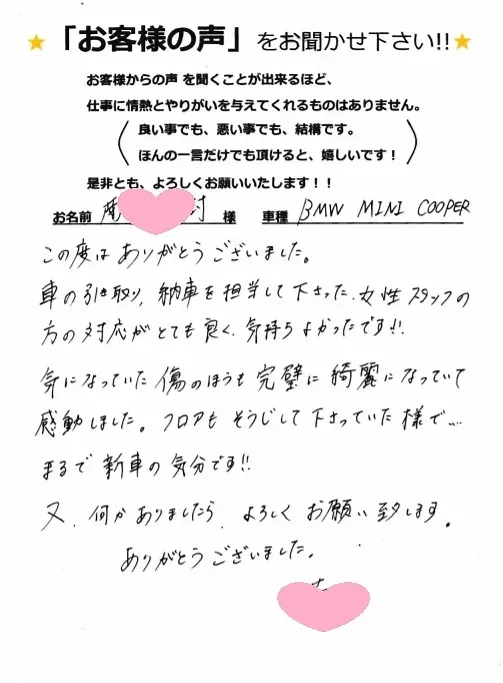 ★「お客様の声」をお聞かせ下さい!!★
お客様からの声 を聞くことが出来るほど、
仕事に情熱とやりがいを与えてくれるものはありません。
良い事でも、悪い事でも、結構です。
ほんの一言だけでも頂けると、嬉しいです！
是非とも、よろしくお願いいたします！！
お名前 村 様 車種 BMW MINI COOPER
この度はありがとうございました。
車の引き取り, 納車を担当して下さった、女性スタッフの
方の対応がとても良く、気持ちよかったです!!
気になっていた傷のほうも完璧に綺麗になっていて
感動しました。フロアもそうじして下さっていた様で…
まるで新車の気分です!!
又、何かありましたら、よろしくお願い致します。
ありがとうございました。